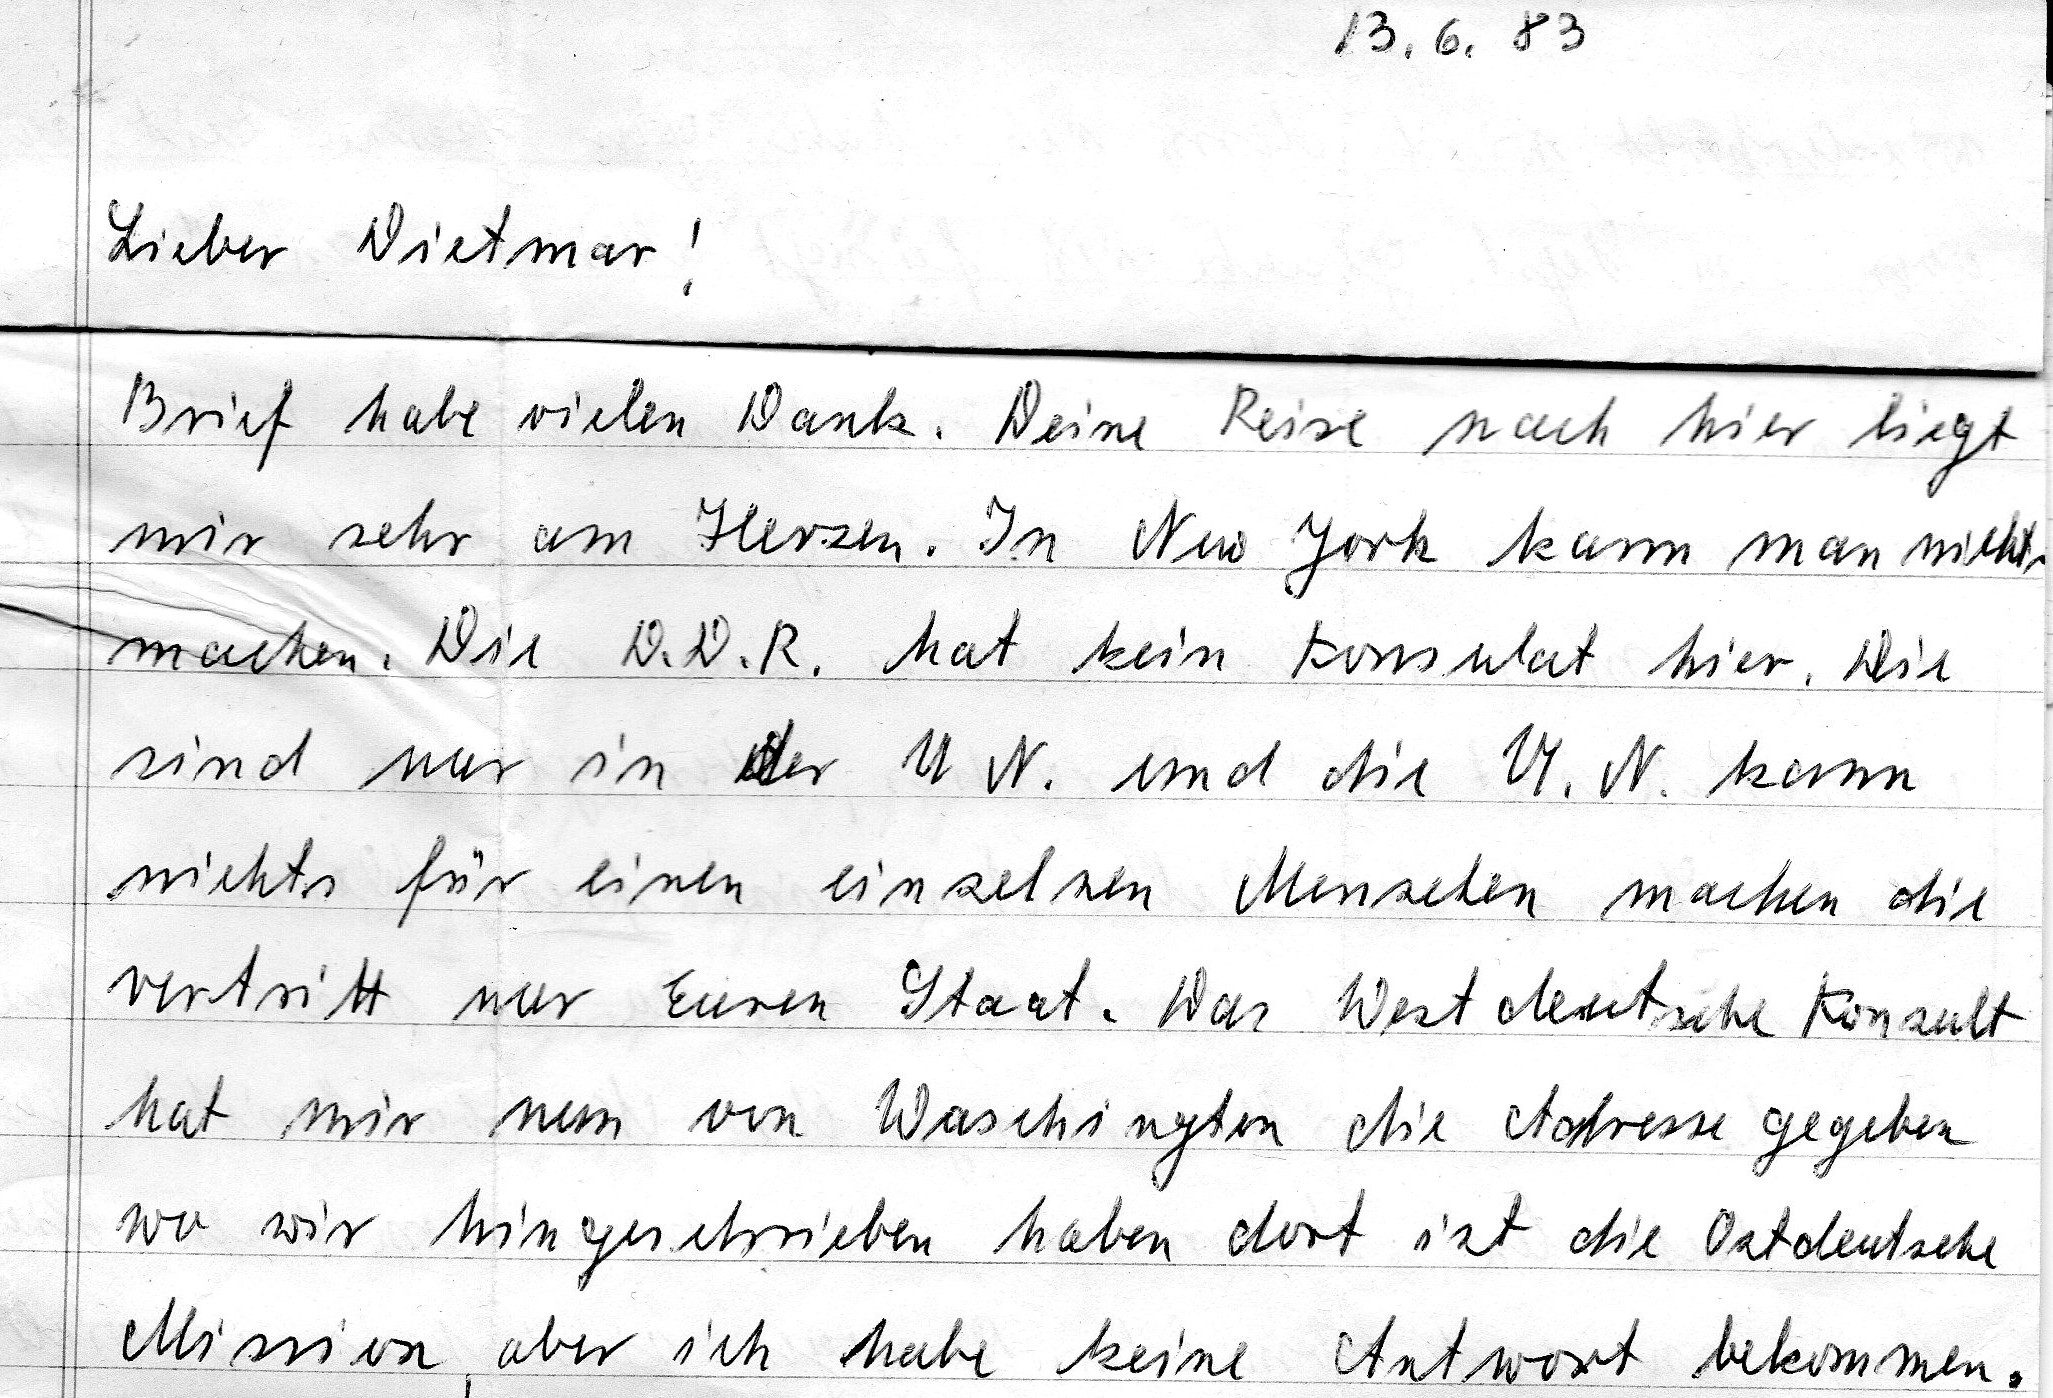 13. 6. 83
Lieber Dietmar!
Brief habe vielen Dank. Deine Reise nach hier liegt
mir sehr am Herzen. In New York kann man nichts
machen. Die D.D.R. hat kein Konsulat hier. Die
sind nur in der U N. und die U. N. kann
nichts für einen einzelnen Menschen machen die
vertritt nur Euren Staat. Das Westdeutsche Konsult
hat mir nun von Waschington die Adresse gegeben
wo wir hingeschrieben haben dort ist die Ostdeutsche
Mission, aber ich habe keine Antwort bekommen.